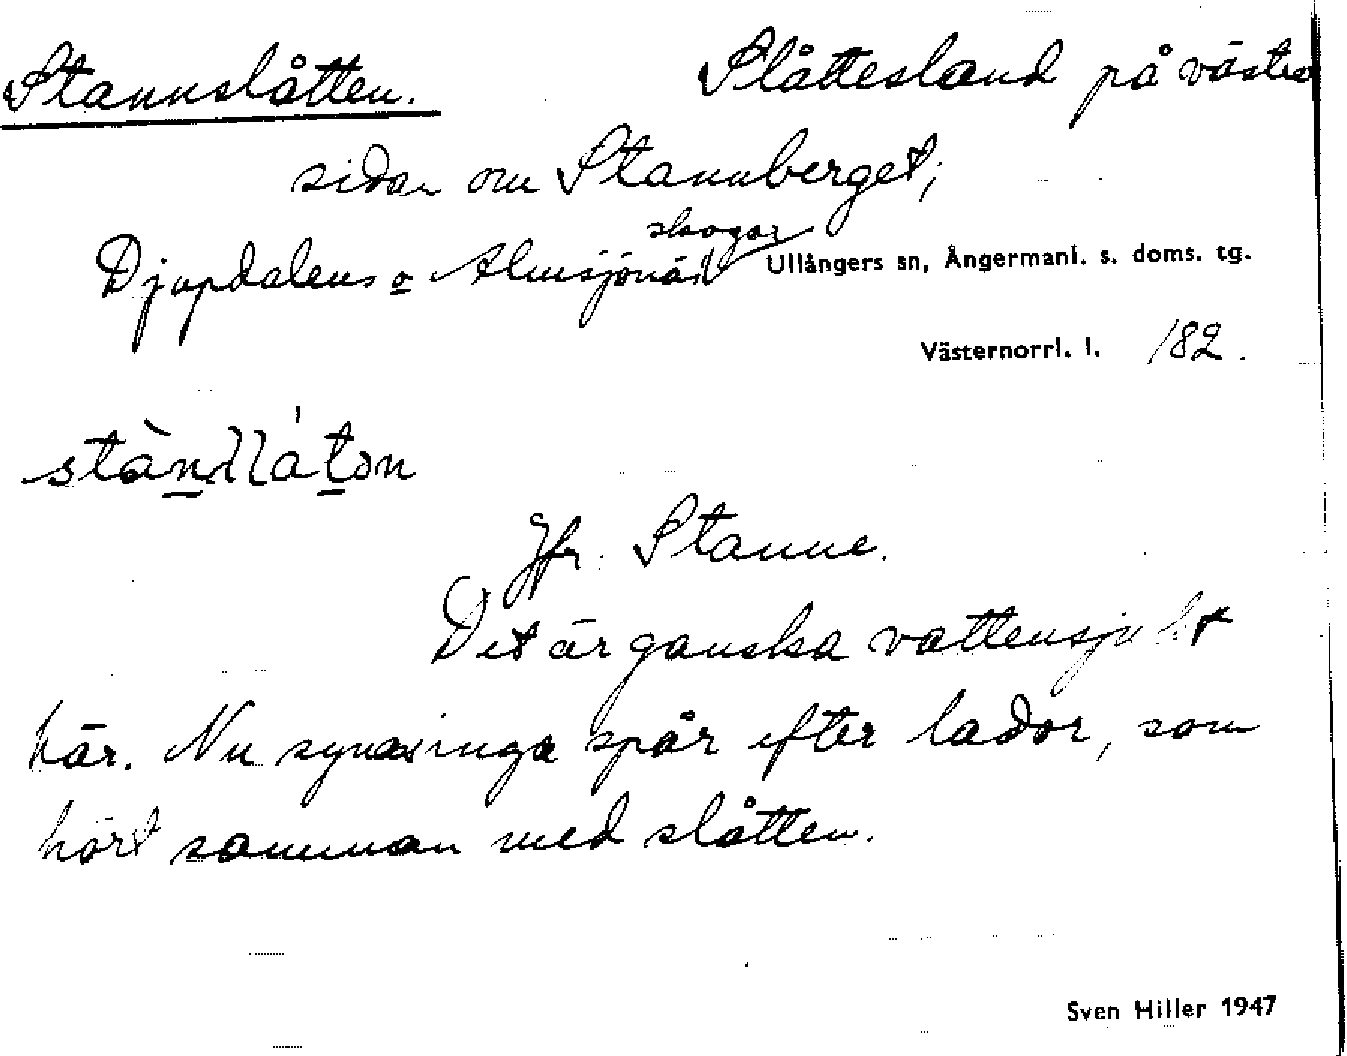 Stannslåtten. Slåttesland på västra
sidan om Stannberget;
skogar
Djupdalens o Almsjönäs Ullångers sn, Ångermanl. s. doms. tg.
Västernorrl. l. 182.
Jfr. Stanne.
Det är ganska vattensjukt
här. Nu synas inga spår efter lador, som
hört samman med slåtten.
Sven Hiller 1947